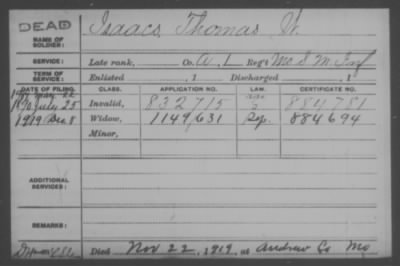 DEAD
Isaacs, Thomas W.
NAME OF SOLDIER:
SERVICE: Late rank, Co. A, 1 Reg't Mo S M Inf
TERM OF SERVICE: Enlisted , 1 Discharged , 1
DATE OF FILING. CLASS. APPLICATION NO. LAW. CERTIFICATE NO.
1890 July 25 Invalid, 832715 884781
1919 Dec 8 Widow, 1149631 884694
Minor,
ADDITIONAL SERVICES:
REMARKS:
Died Nov 22, 1919, at Andrew Co Mo